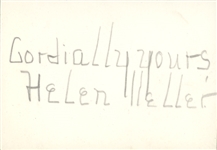 Cordially yours
Helen Keller